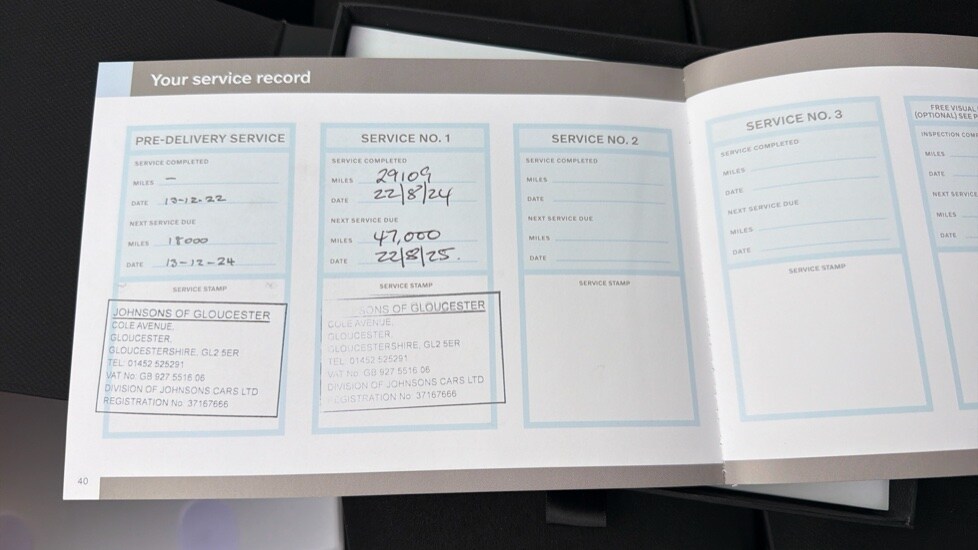 Your service record
PRE-DELIVERY SERVICE
SERVICE COMPLETED
MILES –
DATE 13-12-22
NEXT SERVICE DUE
MILES 18000
DATE 13-12-24
SERVICE STAMP
JOHNSONS OF GLOUCESTER
COLE AVENUE,
GLOUCESTER,
GLOUCESTERSHIRE, GL2 5ER
TEL: 01452 525291
VAT No: GB 927 5516 06
DIVISION OF JOHNSONS CARS LTD
REGISTRATION No: 37167666
SERVICE NO. 1
SERVICE COMPLETED
MILES 29109
DATE 22/8/24
NEXT SERVICE DUE
MILES 47,000
DATE 22/8/25.
SERVICE STAMP
ONS OF GLOUCESTER
COLE AVENUE,
GLOUCESTER,
GLOUCESTERSHIRE, GL2 5ER
TEL: 01452 525291
VAT No: GB 927 5516 06
DIVISION OF JOHNSONS CARS LTD
REGISTRATION No: 37167666
SERVICE NO. 2
SERVICE COMPLETED
MILES
DATE
NEXT SERVICE DUE
MILES
DATE
SERVICE STAMP
SERVICE NO. 3
SERVICE COMPLETED
MILES
DATE
NEXT SERVICE DUE
MILES
DATE
SERVICE STAMP
FREE VISUAL
(OPTIONAL) SEE P
INSPECTION COM
MILES
DATE
NEXT SERVICE
MILES
DATE
40